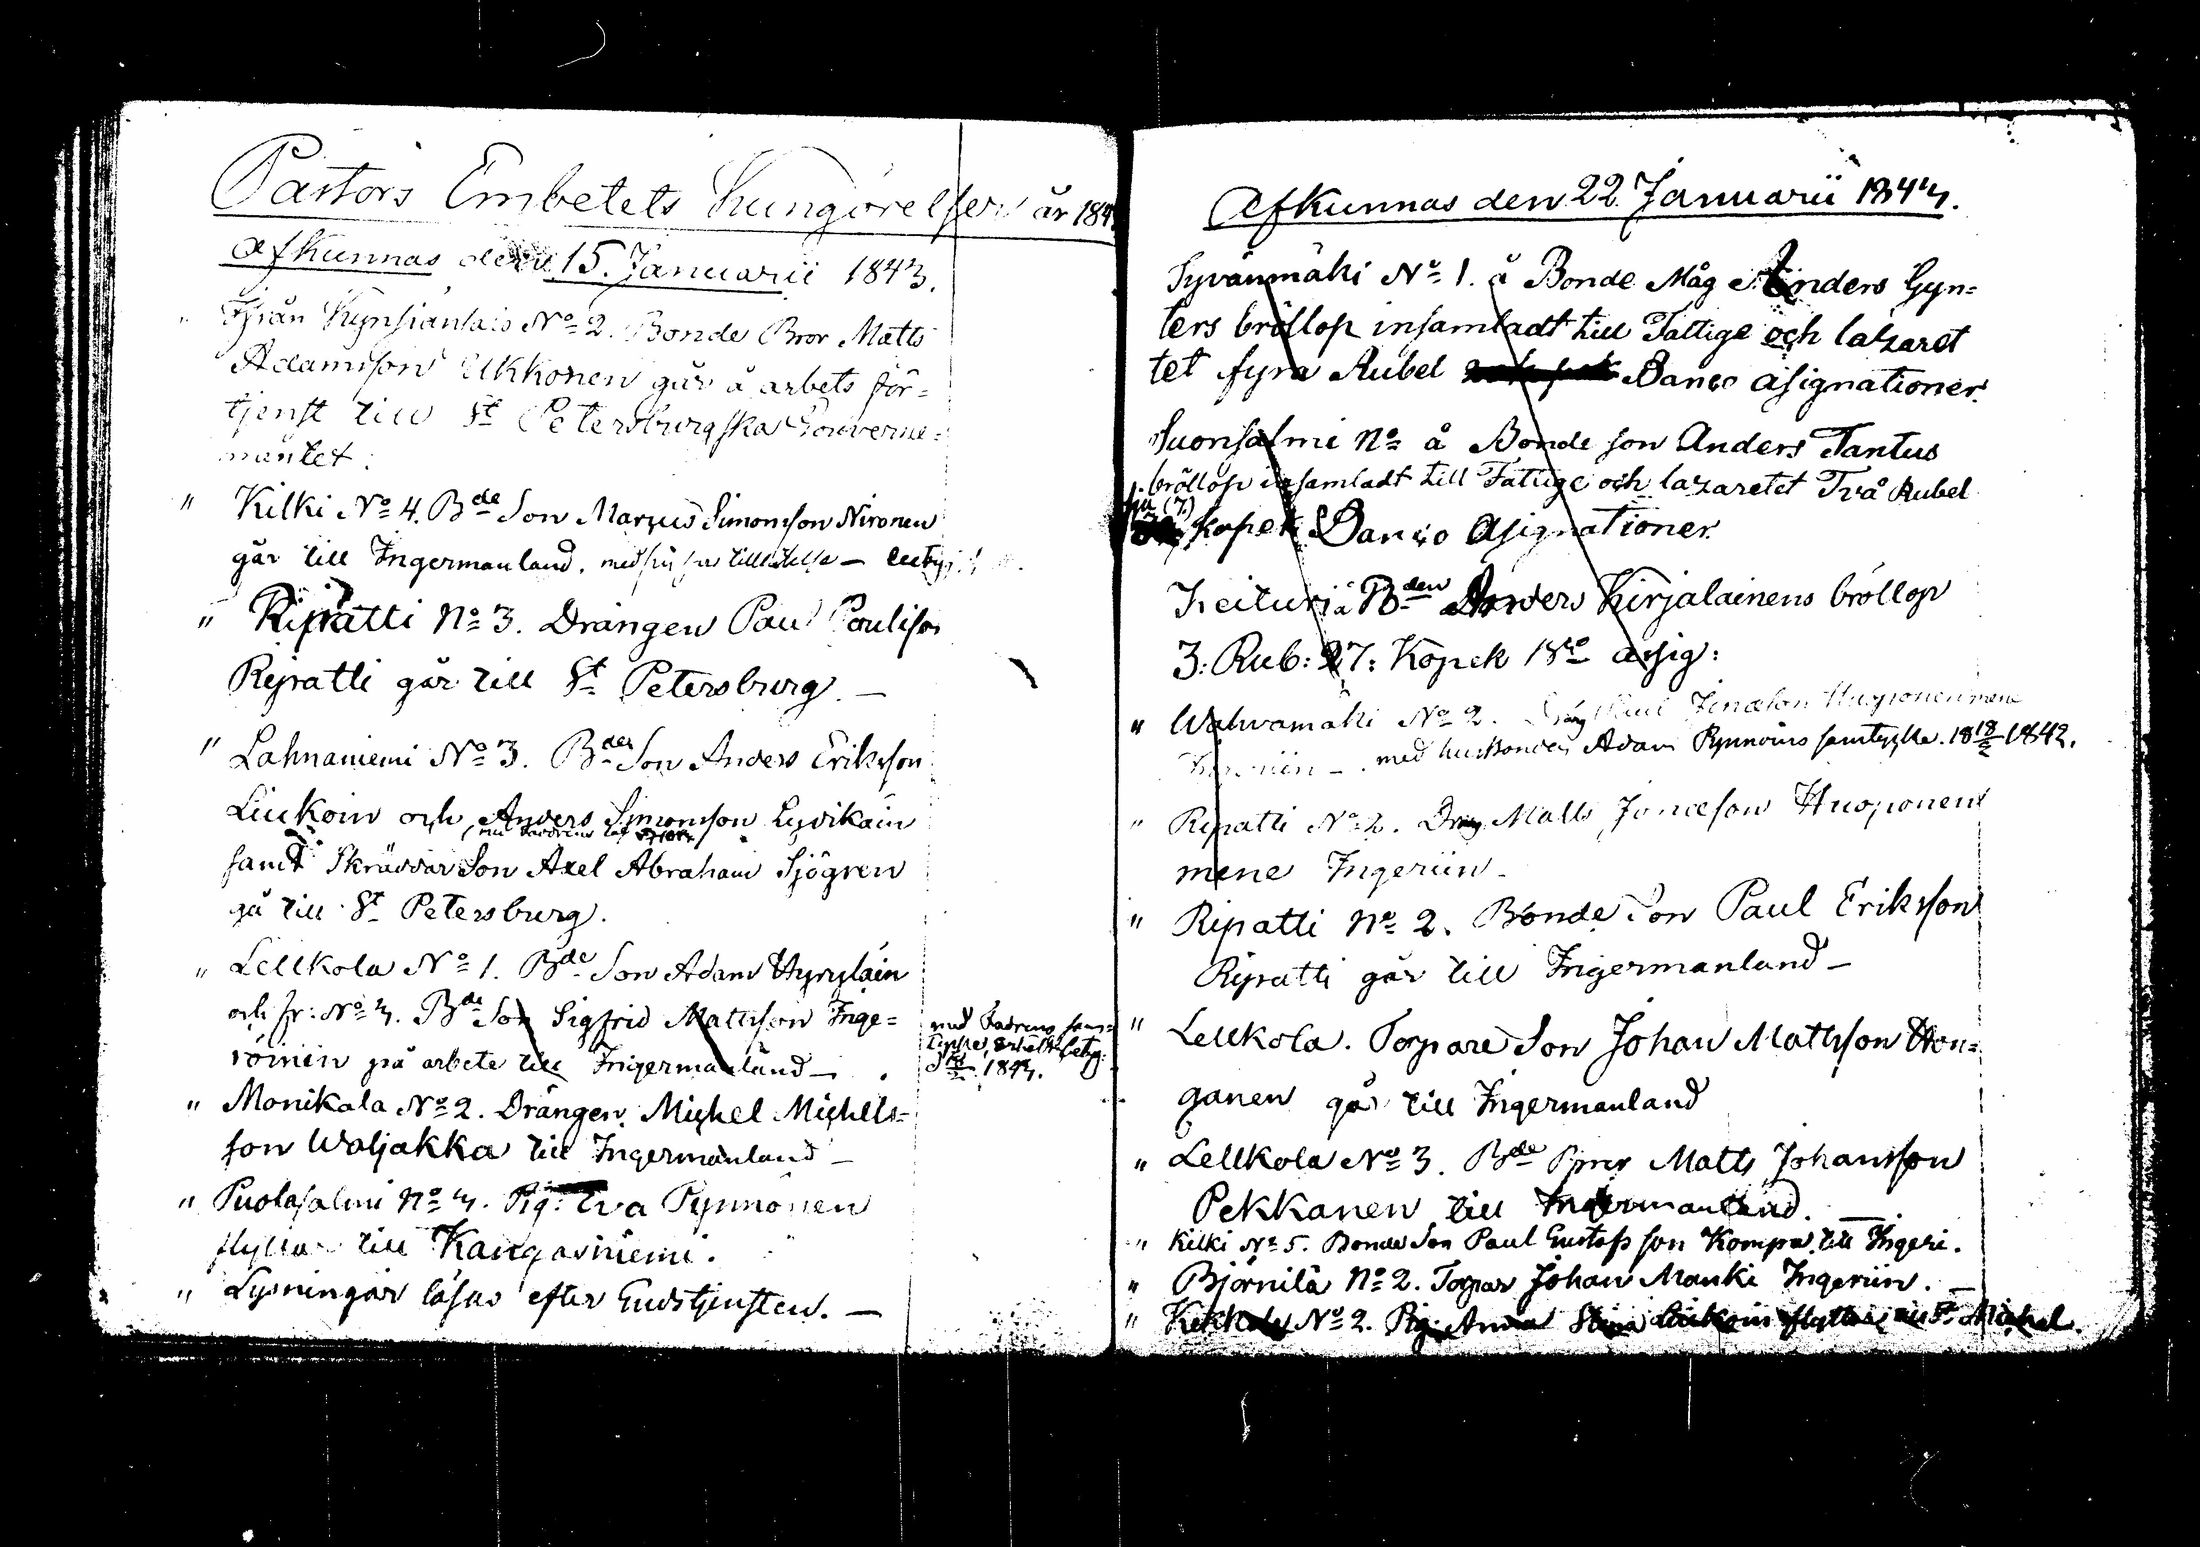 Pastors Embetets Kungörelser år 184
Afkunnas den 15. Januarii 1843.
" Från Kynsiänsalo No 2. Bonde Bror Matts
Adamsson Ukkonen går å arbets för=
tjenst till St Petersburgska Gouverne=
mäntet.
" Kilki No 4. Bde Son Marcus Simonsson Nironen
går till Ingermanland.
" Ripatti No 3. Drängen Paul Paulsson
Ripatti går till St Petersburg. —
" Lahnaniemi No 3. Bdes Son Anders Eriksson
Liukoin och Anders Simonsson Lyvikäin
samt Skräddar Son Axel Abraham Sjögren
gå till St Petersburg.
" Lellkola No 1. Bde Son Adam Hyrylain
och fr: No 3. Bde Son Sigfrid Mattsson Inge=
röinen på arbete till Ingermanland —
med Fadrens sam=
tycke
1843.
" Monikala No 2. Drängen Michel Michels=
son Waljakka till Ingermanland —
" Puolasalmi No 3. Pig: Eva Pynnönen
flyttar till Kangasniemi.
" Lysningar läsas efter Gudstjensten. —
Afkunnas den 22. Januarii 1843.
Syvänmäki No 1. å Bonde Måg Anders Gyn=
ters bröllop insamladt till Fattige och lazaret
tet fyra Rubel Banco Assignationer.
Suonsalmi No å Bonde son Anders Tantus
bröllop insamladt till Fattige och lazaretet Två Rubel
sju (7.)
kopek Banco Assignationer.
Keituri å Bden Anders Kirjalainens bröllop
3. Rub: 27: Kopek Bco assig:
" Wahvamäki No 2. Dräng Paul Jonæson Huoponen mene
Ingeriin — med husbonden Adam Pynnöins samtycke. 18 18/2 1842.
" Ripatti No 2. Dräng Matts Jonæson Huoponen
mene Ingeriin —
" Ripatti No 2. Bonde Son Paul Eriksson
Ripatti går till Ingermanland —
" Lellkola. Torpare Son Johan Mattsson Hon=
ganen går till Ingermanland
" Lellkola No 3. Bde Bror Matts Johansson
Pekkanen till Ingermanland. —
" Kilki No 5. Bonde Son Paul Gustafsson Kompa till Ingeri.
" Björnilä No 2. Torpar Johan Manki Ingeriin. —
" No 2. Pig: Anna Stina Liukoin flyttar till St Michel.